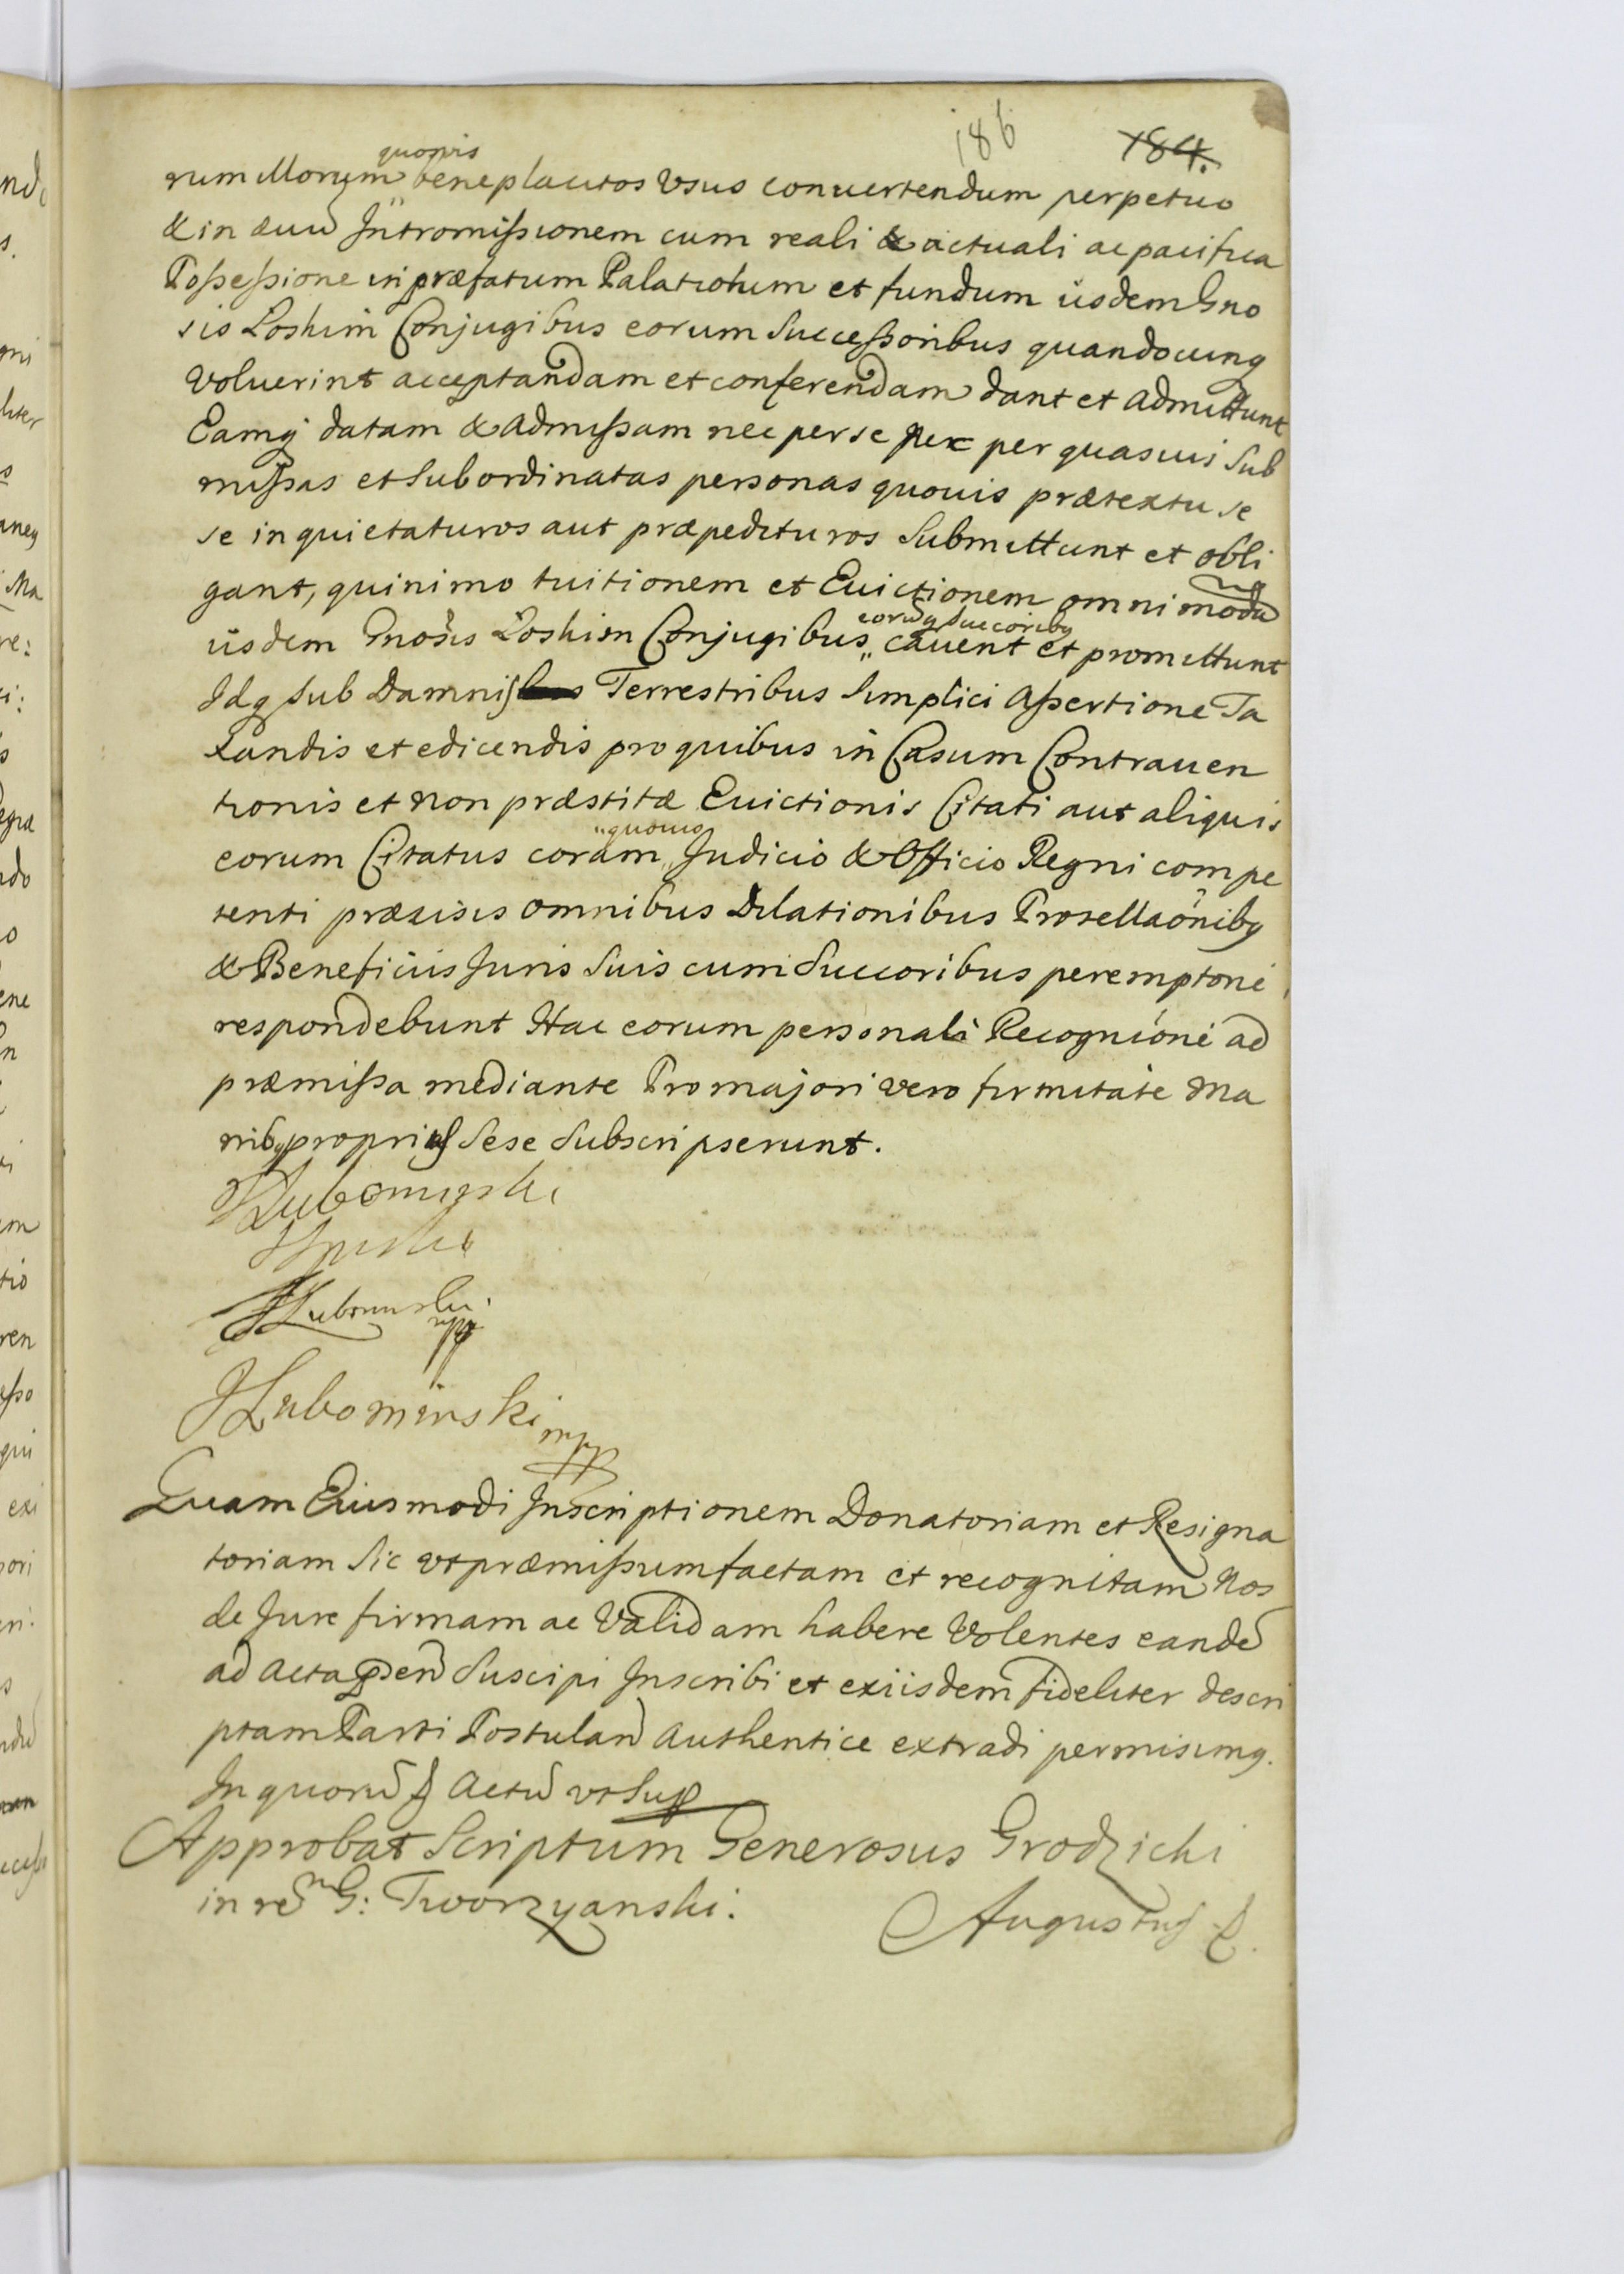 186 184.
quovis
rum illorum beneplacitos Usus convertendum perpetuo
& in ævũ Intromissionem cum reali & actuali ac pacifica
Possessione in præfatum Palatiolum et fundum iisdem Gno
sis Loskim Conjugibus eorum Successoribus quandocunq
Voluerint acceptandam et conferendam dant et admittunt
Eamq datam & admissam nec per se nec per quasvis Sub
missas et Subordinatas personas quovis prætextu se
se inquietaturos aut præpedituros Submittunt et obli
gant, quinimo tuitionem et Evictionem omnimodã
eorũq succoribq
iisdem Gnosis Loskim Conjugibus,, cavent et promittunt
Idq sub Damnis Terrestribus Simplici Assertione Ta
xandis et edicendis pro quibus in Casum Contraven
tionis et non præstitæ Evictionis Citati aut aliquis
"quovis
eorum Citatus coram,, Judicio & Officio Regni compe
tenti præcisis omnibus Dilationibus Protellaonibq
& Beneficiis Juris Suis cum Succoribus peremptorie
respondebunt Hac eorum personali Recognione ad
præmissa mediante Pro majori vero firmitate Ma
nibq propriis Sese Subscripserunt.
Lubomirski
Lubomirski
mpp
JLubomirski mpp
Quam Eiusmodi Inscriptionem Donatoriam et Resigna
toriam Sic ut præmissum factam et recognitam Nos
de Jure firmam ac Validam habere Volentes eandẽ
ad Acta p̃sen Suscipi Inscribi et exiisdem fideliter descri
ptam Parti Postulan Authentice extradi permisimq.
In quorũ f Actũ ut Sup
Approbat Scriptum Generosus Grodzicki
in rem G: Tworzyanski. Augustus f.